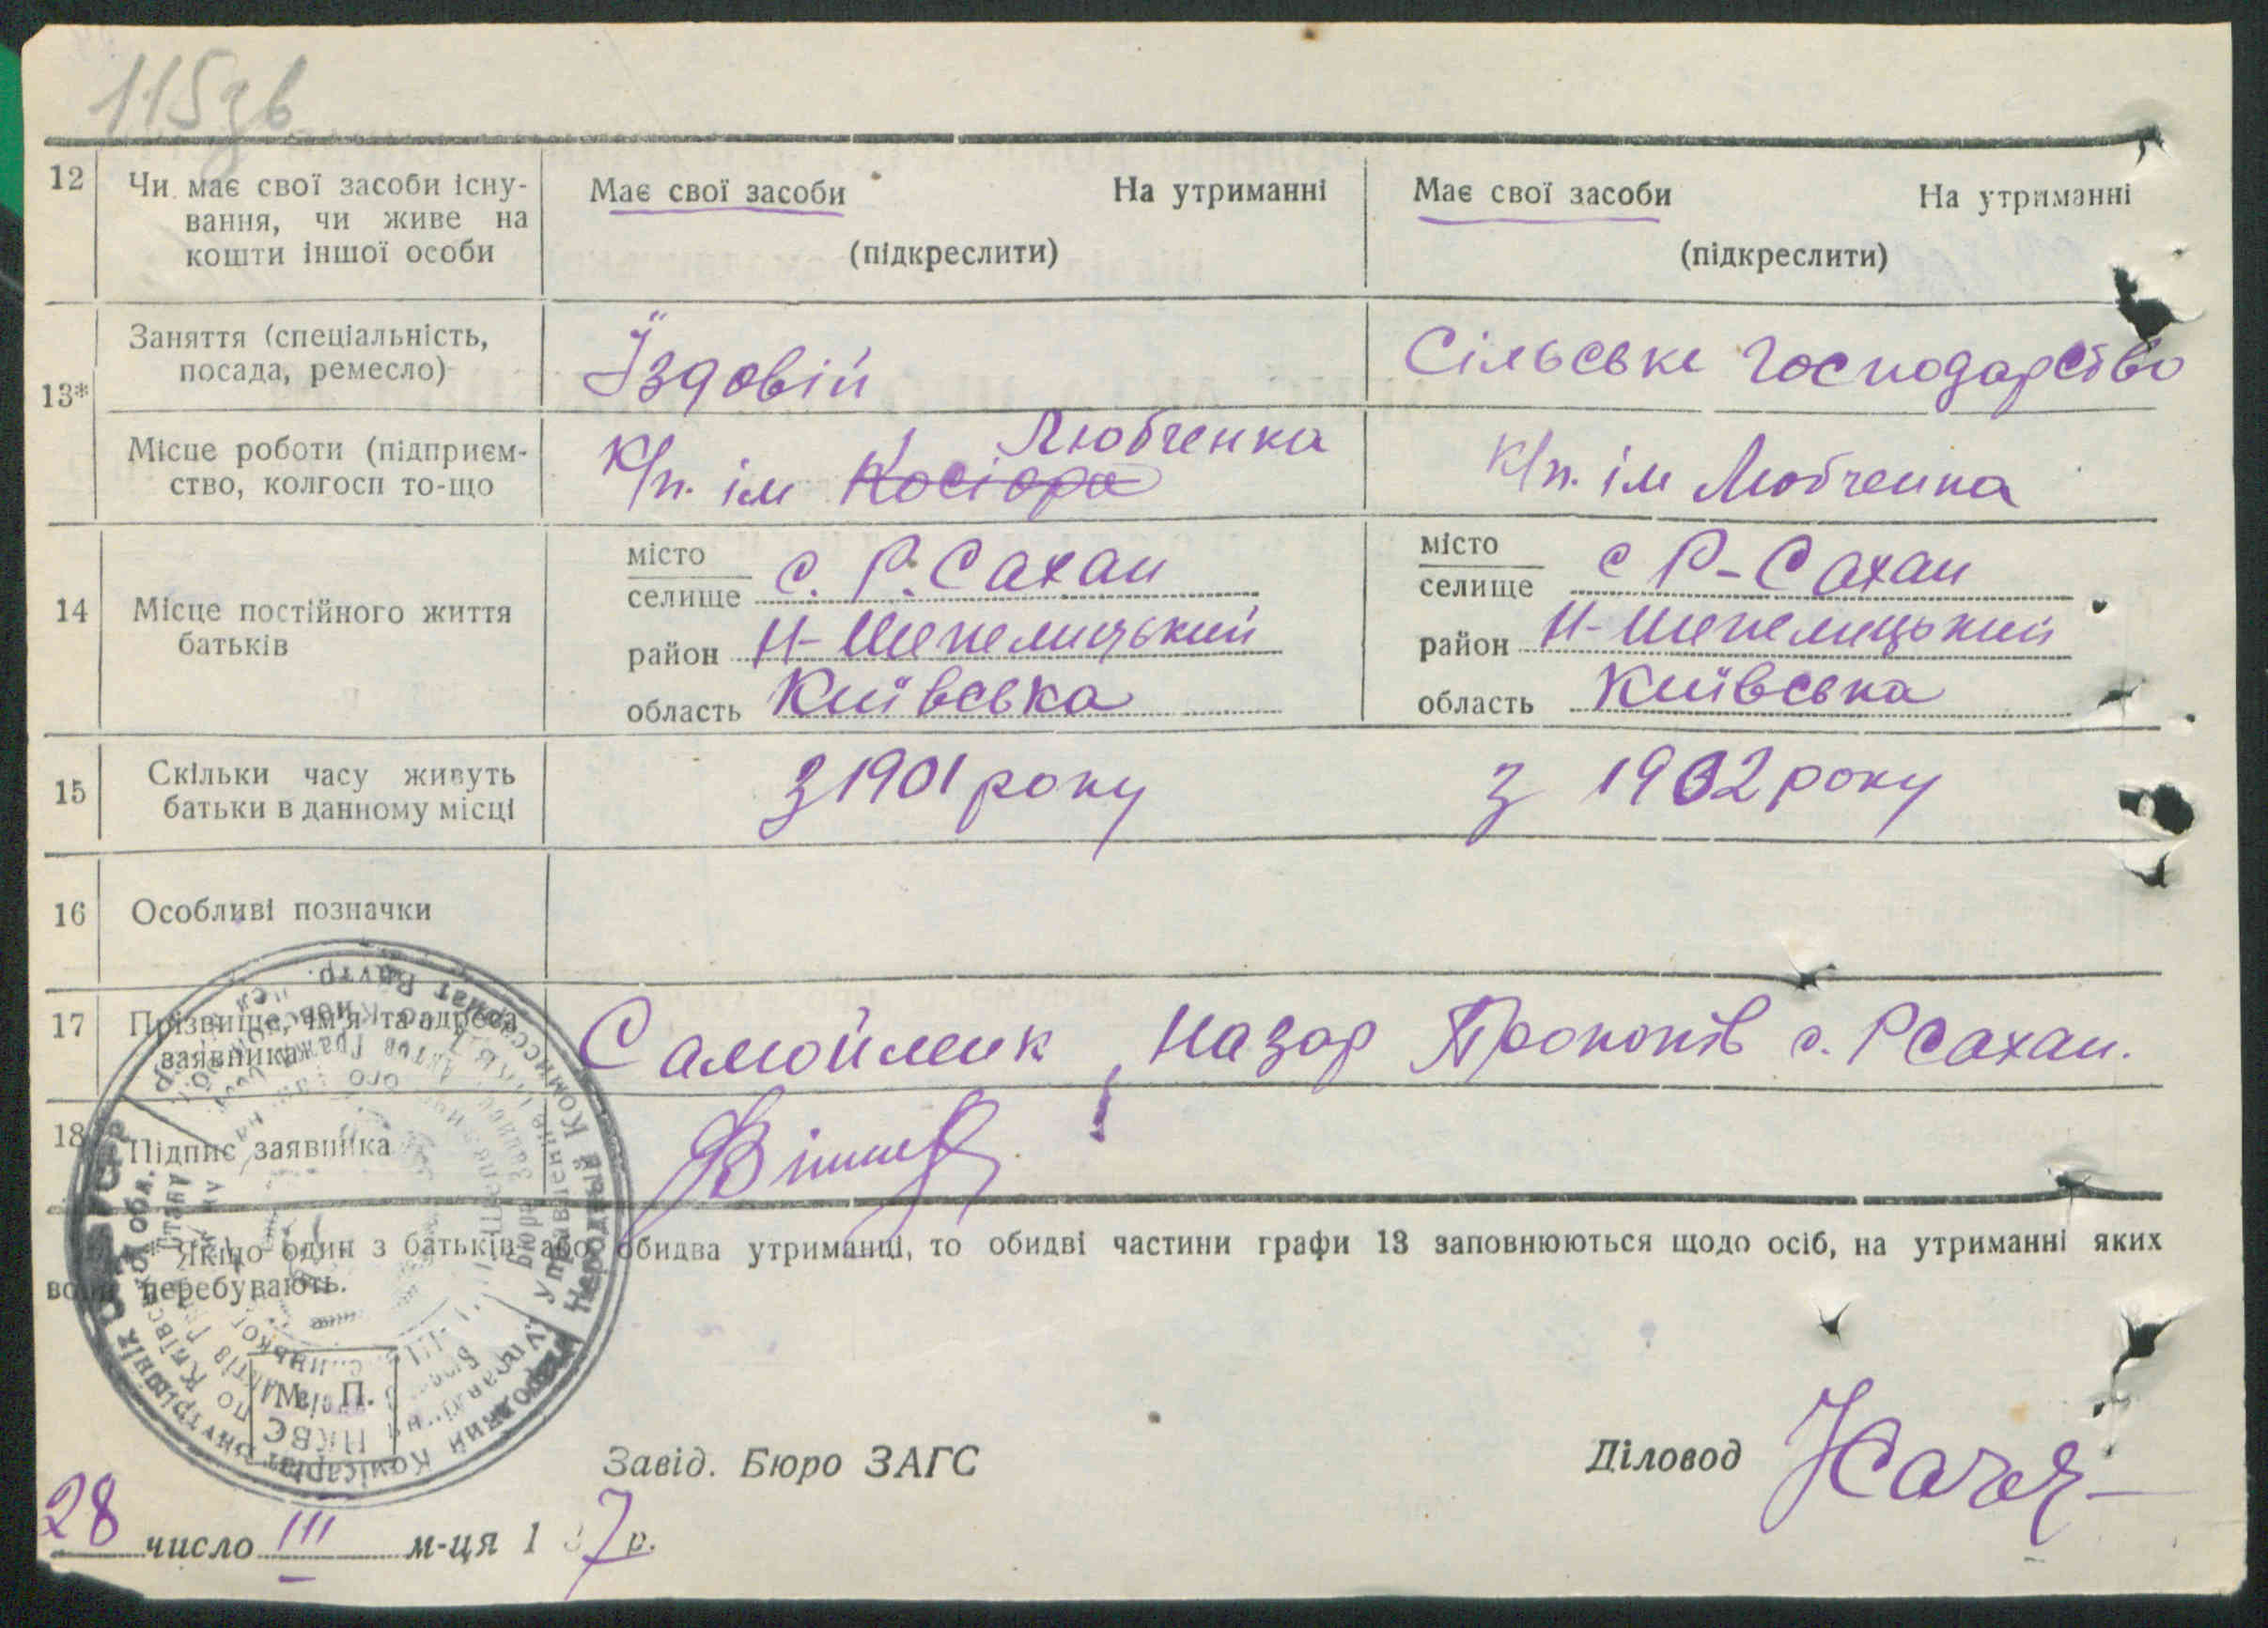 115зв
12 Чи має свої засоби існу- Має свої засоби На утриманні Має свої засоби На утриманні
вання, чи живе на
кошти іншої особи (підкреслити) (підкреслити)
13* Заняття (спеціальність, Їздовій Сільське Господарство
посада, ремесло)
Місце роботи (підприєм- К/п. ім Косіора Любченка К/п. ім Любченка
ство, колгосп то-що
14 Місце постійного життя місто с. Р. Сахан місто с Р-Сахан
батьків селище селище
район Н-Шепелицький район Н-Шепелицький
область Київська область Київська
15 Скільки часу живуть з 1901 року з 1902 року
батьки в данному місці
16 Особливі позначки
17 Прізвище, ім'я та адреса Самойленк, Назар Прокопів с. Р Сахан.
заявника
18 Підпис заявника
* Якщо один з батьків або обидва утриманці, то обидві частини графи 13 заповнюються щодо осіб, на утриманні яких
вони перебувають.
М. П.
Завід. Бюро ЗАГС Діловод
28 число III м-ця 1 37 р.